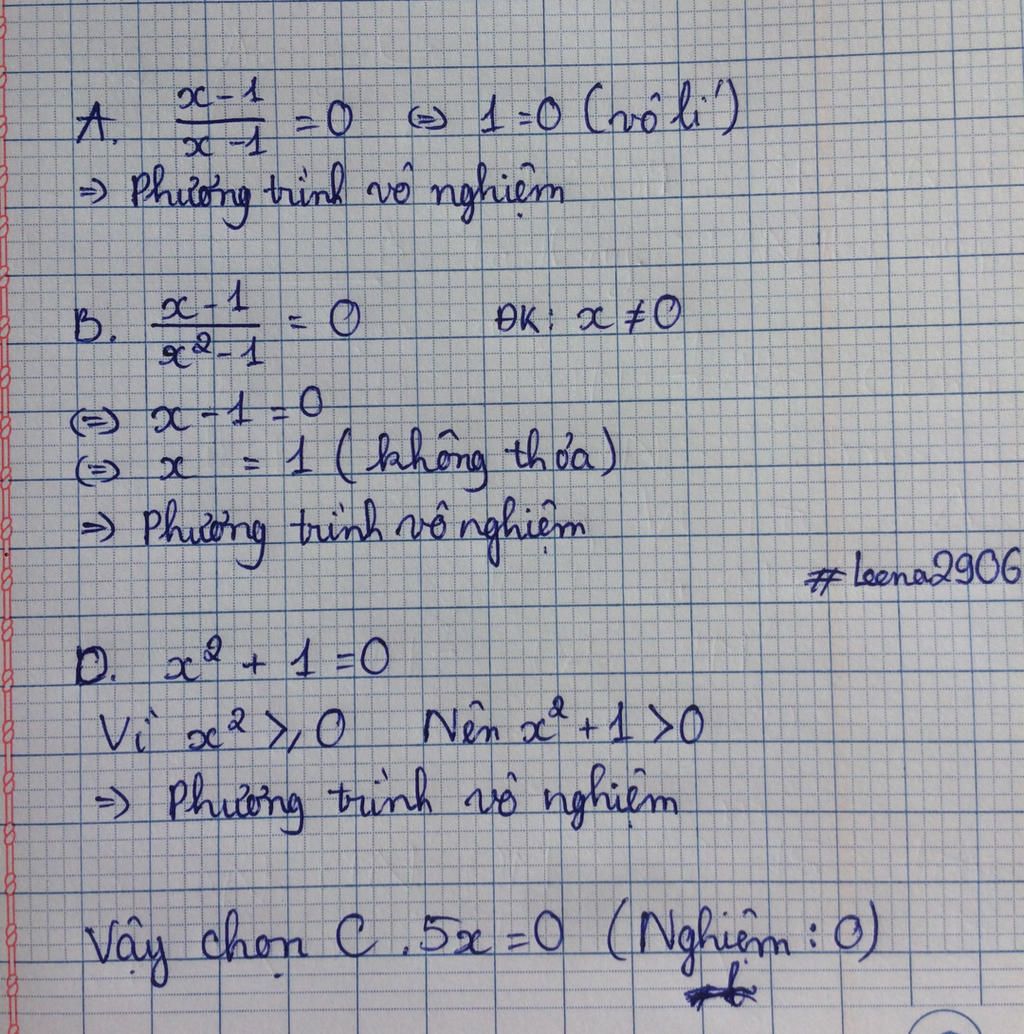 A. (x-1)/(x-1) = 0 ⇔ 1=0 (vô lí)
⇒ Phương trình vô nghiệm
B. (x-1)/(x²-1) = 0 ĐK: x ≠ 0
(=) x-1 = 0
(=) x = 1 (không thỏa)
⇒ Phương trình vô nghiệm
#Leena2906
D. x² + 1 = 0
Vì x² ≥ 0 Nên x² + 1 > 0
⇒ Phương trình vô nghiệm
Vậy chọn C. 5x = 0 (Nghiệm : 0)